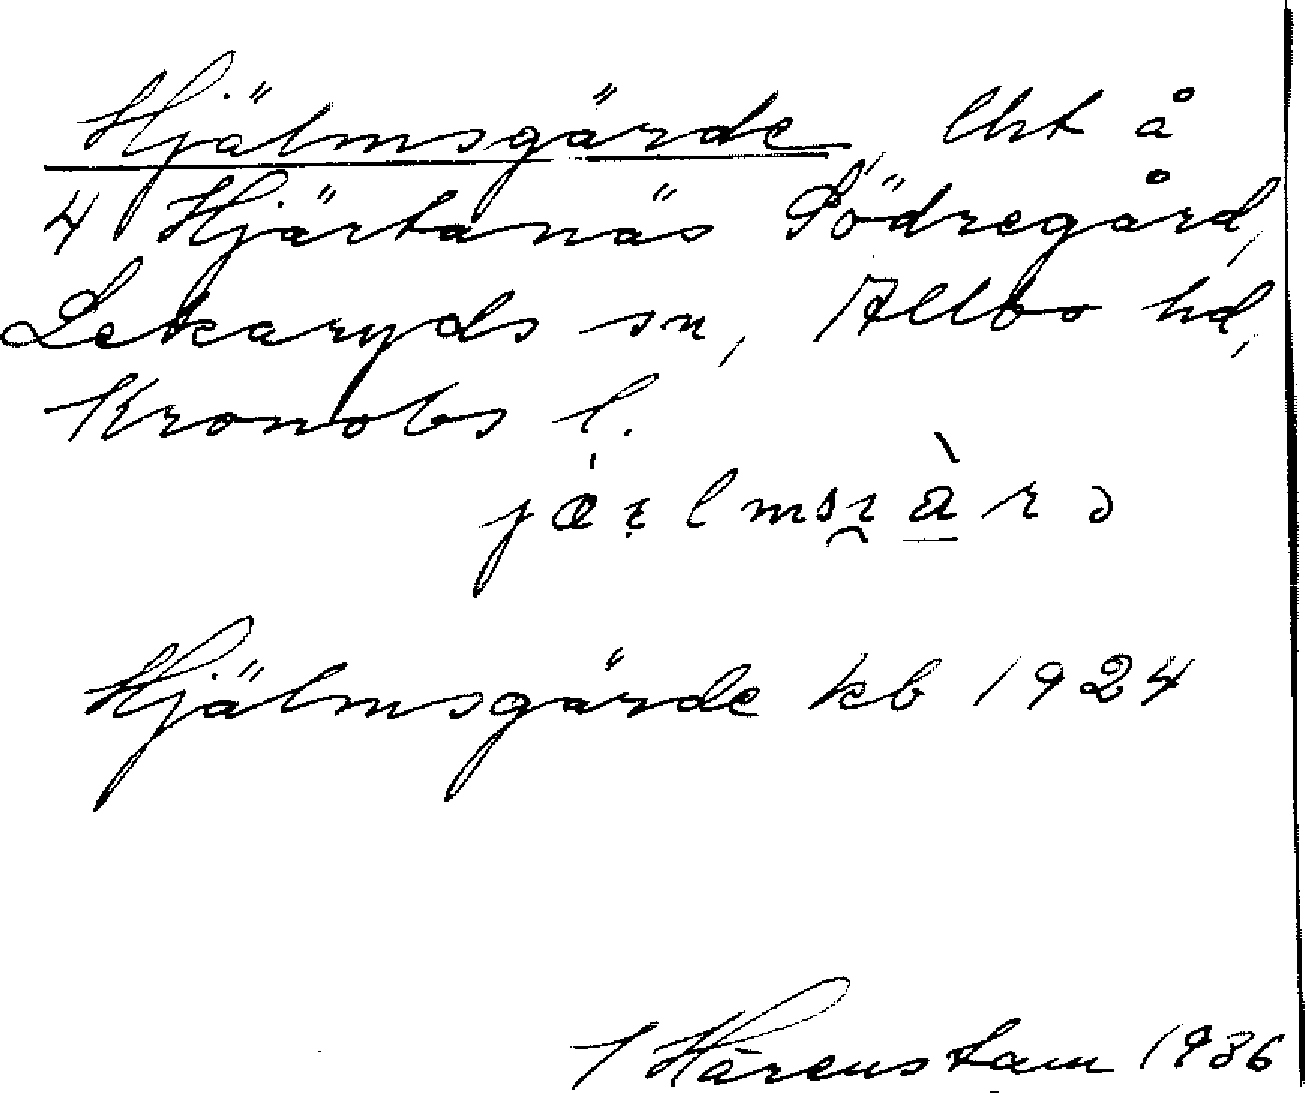 Hjälmsgärde, lht å
4 Hjärtanäs Södregård,
Lekaryds sn, Allbo hd,
Kronobs l.
Hjälmsgärde kb 1924
I Hårenstam 1936